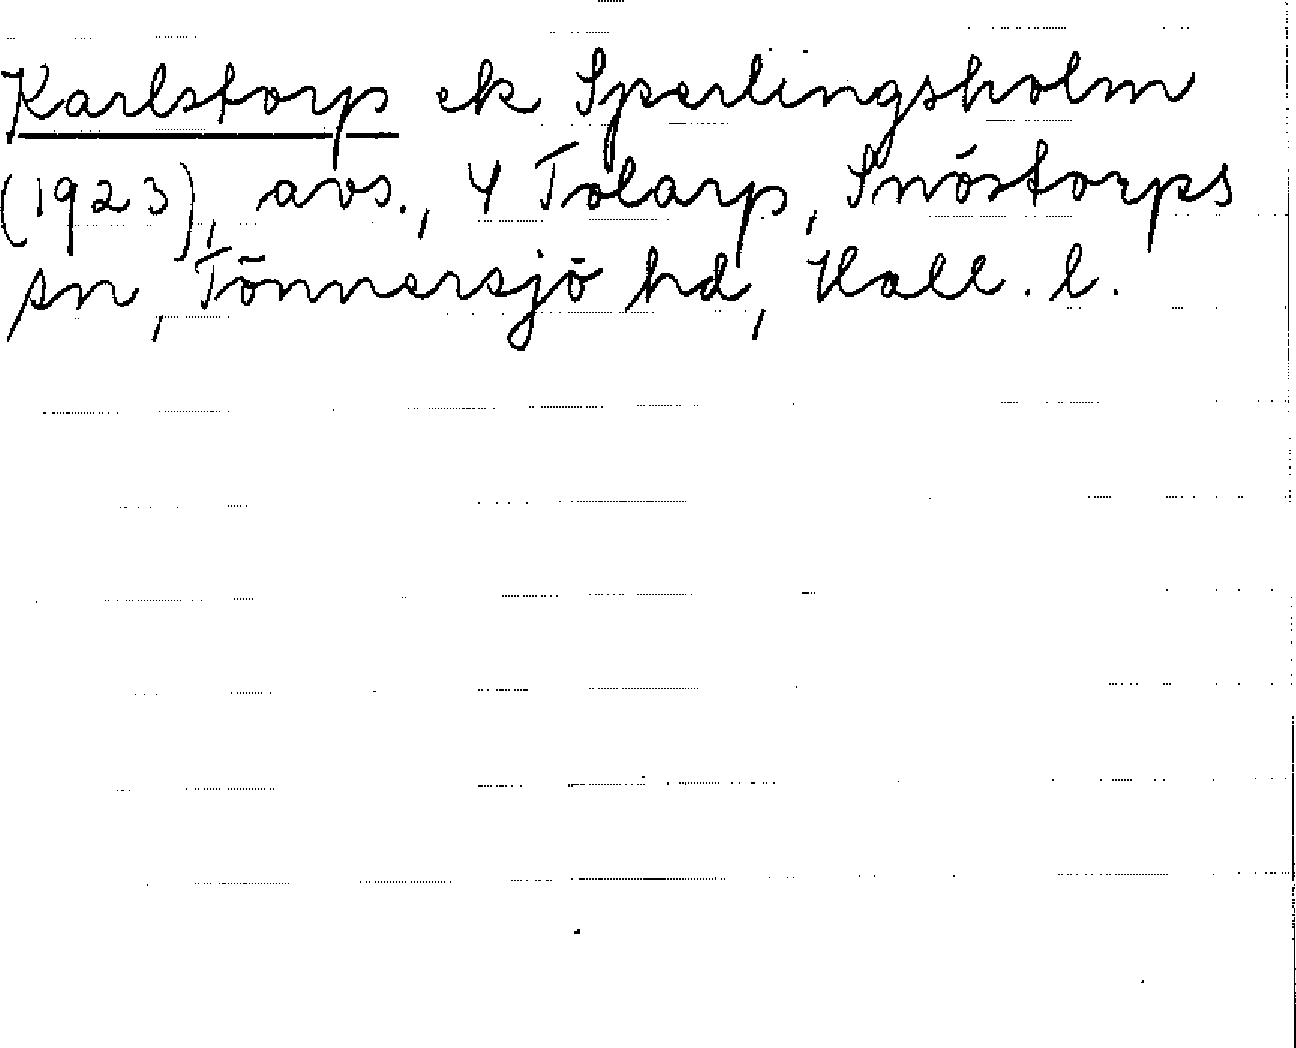 Karlstorp ek Sperlingsholm
(1923), avs., 4 Tolarp, Snöstorps
sn, Tönnersjö hd, Hall. l.